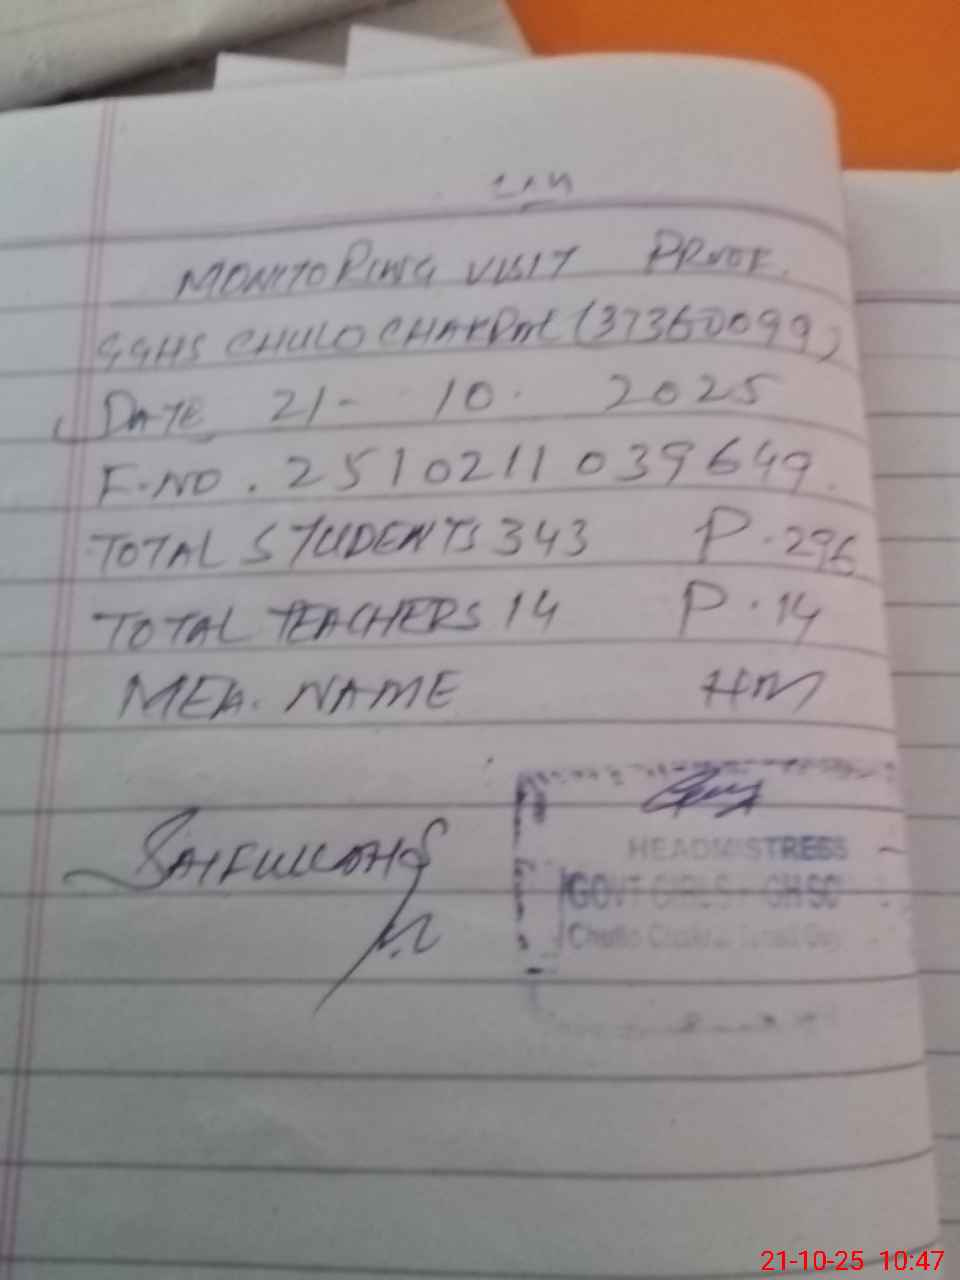 MONITORING VISIT PROOF.
GGHS CHULO CHAKRAL (37360099)
DATE 21- 10. 2025
F.NO. 2510211039649.
TOTAL STUDENTS 343 P. 296
TOTAL TEACHERS 14 P. 14
MEA. NAME HM
SAIFULLAH
HEADMISTRESS
GOVT GIRLS HIGH SC
21-10-25 10:47